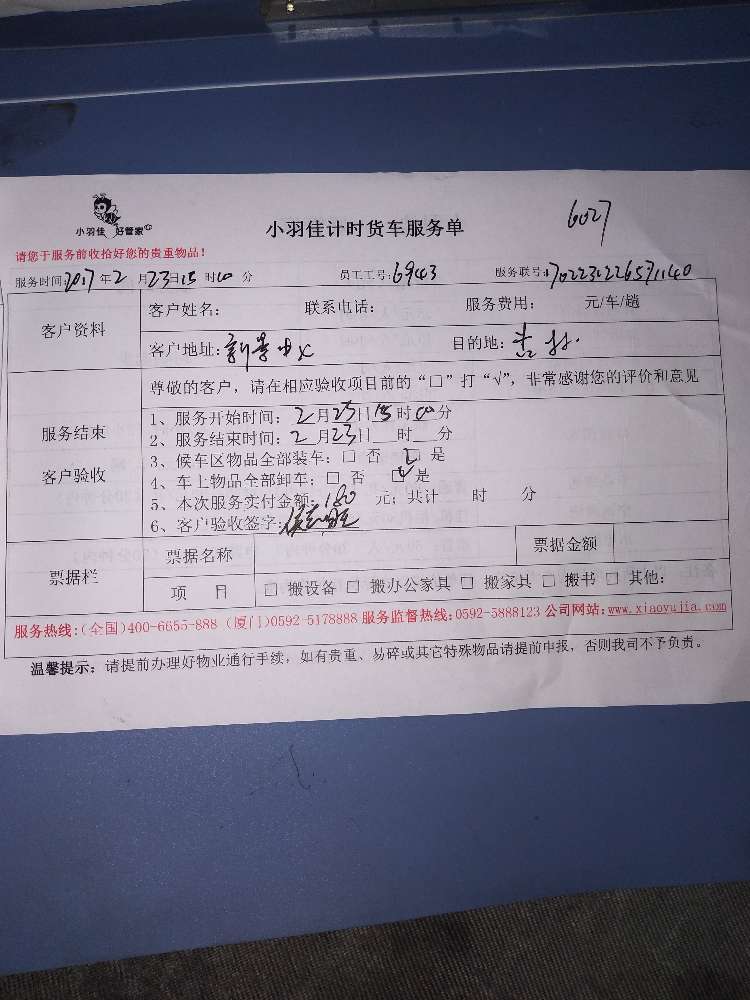 小羽佳 好管家
小羽佳计时货车服务单
6027
请您于服务前收拾好您的贵重物品！
服务时间：2017年2月23日15时00分 员工工号：6943 服务联号：
客户资料
客户姓名： 联系电话： 服务费用： 元/车/趟
客户地址： 目的地：吉林
尊敬的客户，请在相应验收项目前的“□”打“√”，非常感谢您的评价和意见
服务结束
客户验收
1、服务开始时间：2月23日15时00分
2、服务结束时间：2月23日__时__分
3、候车区物品全部装车：□ 否 □ 是
4、车上物品全部卸车：□ 否 □ 是
5、本次服务实付金额：180元；共计 时 分
6、客户验收签字：
票据栏
票据名称 票据金额
项 目 □ 搬设备 □ 搬办公家具 □ 搬家具 □ 搬书 □ 其他：
服务热线：(全国)400-6655-888 (厦门)0592-5178888 服务监督热线：0592-5888123 公司网站：www.xiaoyujia.com
温馨提示：请提前办理好物业通行手续，如有贵重、易碎或其它特殊物品请提前申报，否则我司不予负责。